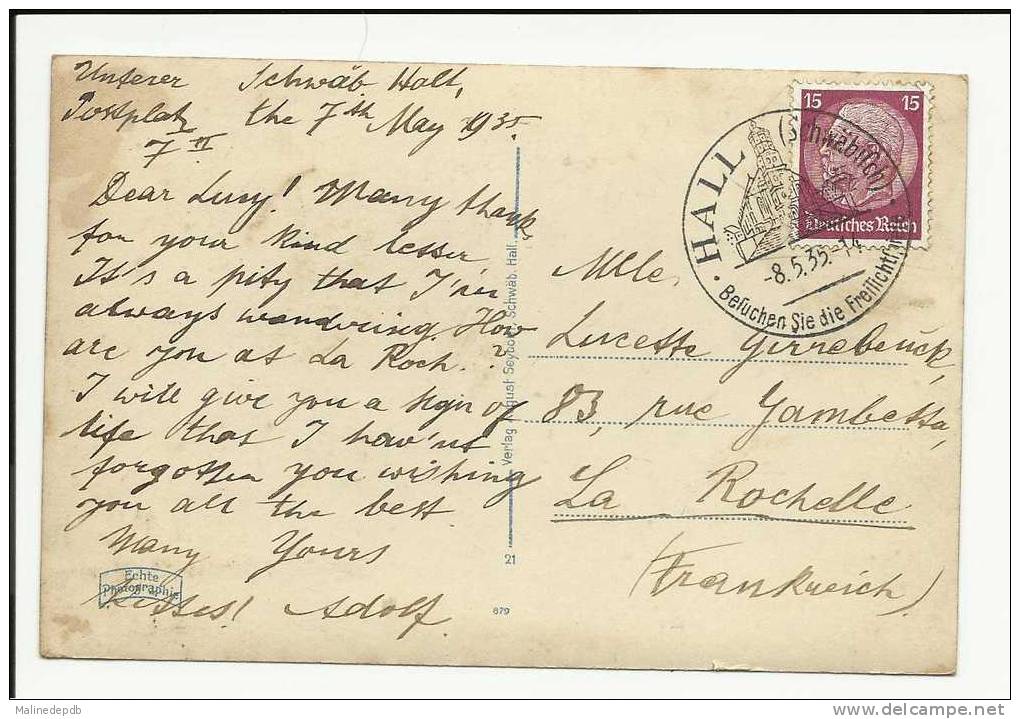 Unterer Schwäb. Hall,
Postplatz the 7th May 1935.
7 II
Dear Lucy! Many thanks
for your kind letter
It's a pity that I'm
always wandring. How
are you at La Roch.?
I will give you a sign of
life that I hav'nt
forgotten you wishing
you all the best
Many Yours
Kisses! Adolf.
Echte
Photographie
Verlag August Seybold, Schwäb. Hall.
21
679
15 15
Deutsches Reich
HALL (Schwäbisch)
-8.5.35.-14
Besuchen Sie die Freilicht
Mlle,
Lucette Girrebeuck,
83, rue Gambetta,
La Rochelle
(Frankreich)
MalinedepdB
www.delcampe.net